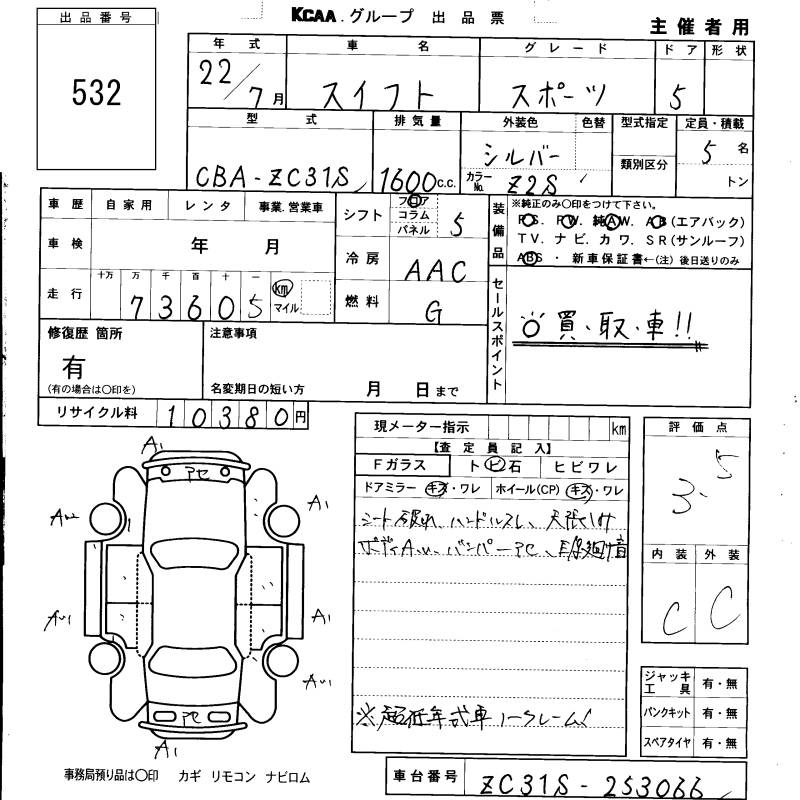 KCAA.グループ 出品票
主催者用
出品番号
532
年式 車名 グレード ドア 形状
22/7月 スイフト スポーツ 5
型式 排気量 外装色 色替 型式指定 定員・積載
CBA-ZC31S 1600c.c. シルバー 5名
カラーNo. Z2S 類別区分 トン
車歴 自家用 レンタ 事業.営業車
車検 年 月
走行 十万 万 千 百 十 一
73605 km マイル
シフト フロア コラム パネル 5
冷房 AAC
燃料 G
装備品 ※純正のみ○印をつけて下さい。
P.S. P.W. 純A.W. A.B(エアバック)
T V. ナビ. カワ. S R (サンルーフ)
ABS ・ 新車保証書←(注) 後日送りのみ
セールスポイント
◎買・取・車!!
修復歴 箇所
有
(有の場合は○印を)
注意事項
名変期日の短い方 月 日まで
リサイクル料 10380円
現メーター指示 km
【査定員記入】
Fガラス トビ石 ヒビワレ
ドアミラー キズ・ワレ ホイール(CP) キズ・ワレ
シート破れ、ハンドルスレ、
ボディAu、バンパーアセ、
※超低年式車ノークレーム!
評価点
3.5
内装 外装
C C
ジャッキ工具 有・無
パンクキット 有・無
スペアタイヤ 有・無
A1
アセ
A1
A1
A1
アセ
事務局預り品は○印 カギ リモコン ナビロム
車台番号 ZC31S-253066